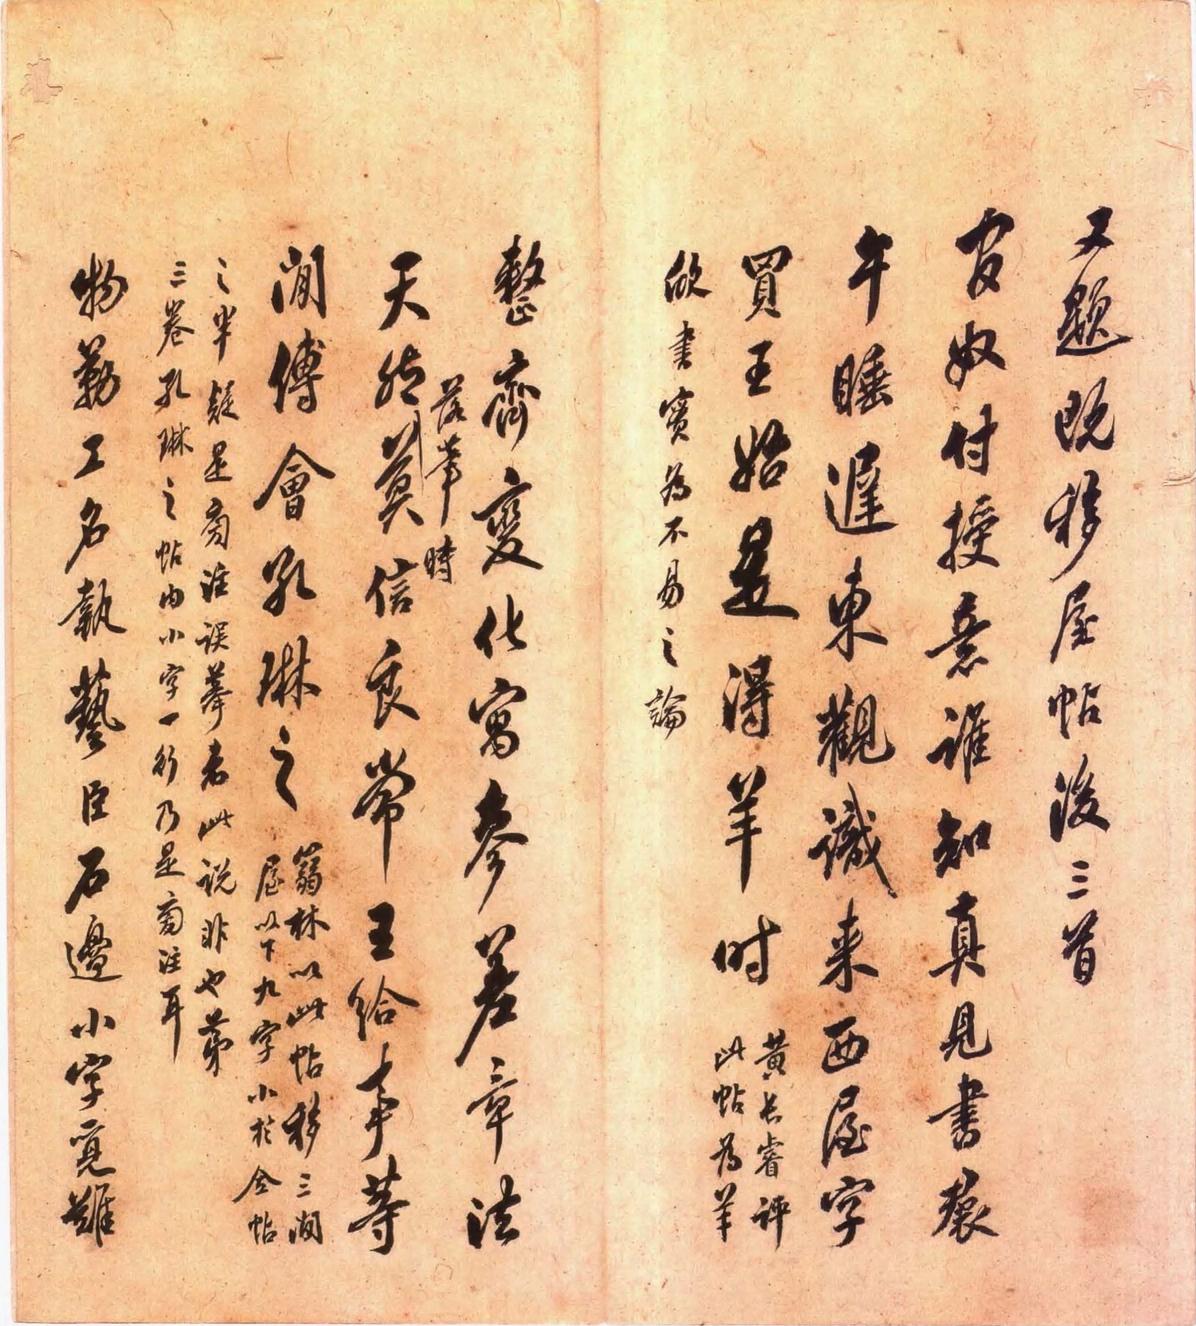 又題既移屋帖後三首
官奴付授意誰知真見書裠
午睡遲東觀識來西屋字
買王始是得羊時
黃長睿評
此帖為羊
欣書實為不易之論
整齊變化寓參差章法
落筆時
天然莫信良常王給事等
閒傅會孔琳之
篛林以此帖移三閒
屋以下九字小於全帖
之半疑是旁注誤摹者此說非也第
三卷孔琳之帖內小字一行乃是旁注耳
物勒工名執藝臣石邊小字覓難